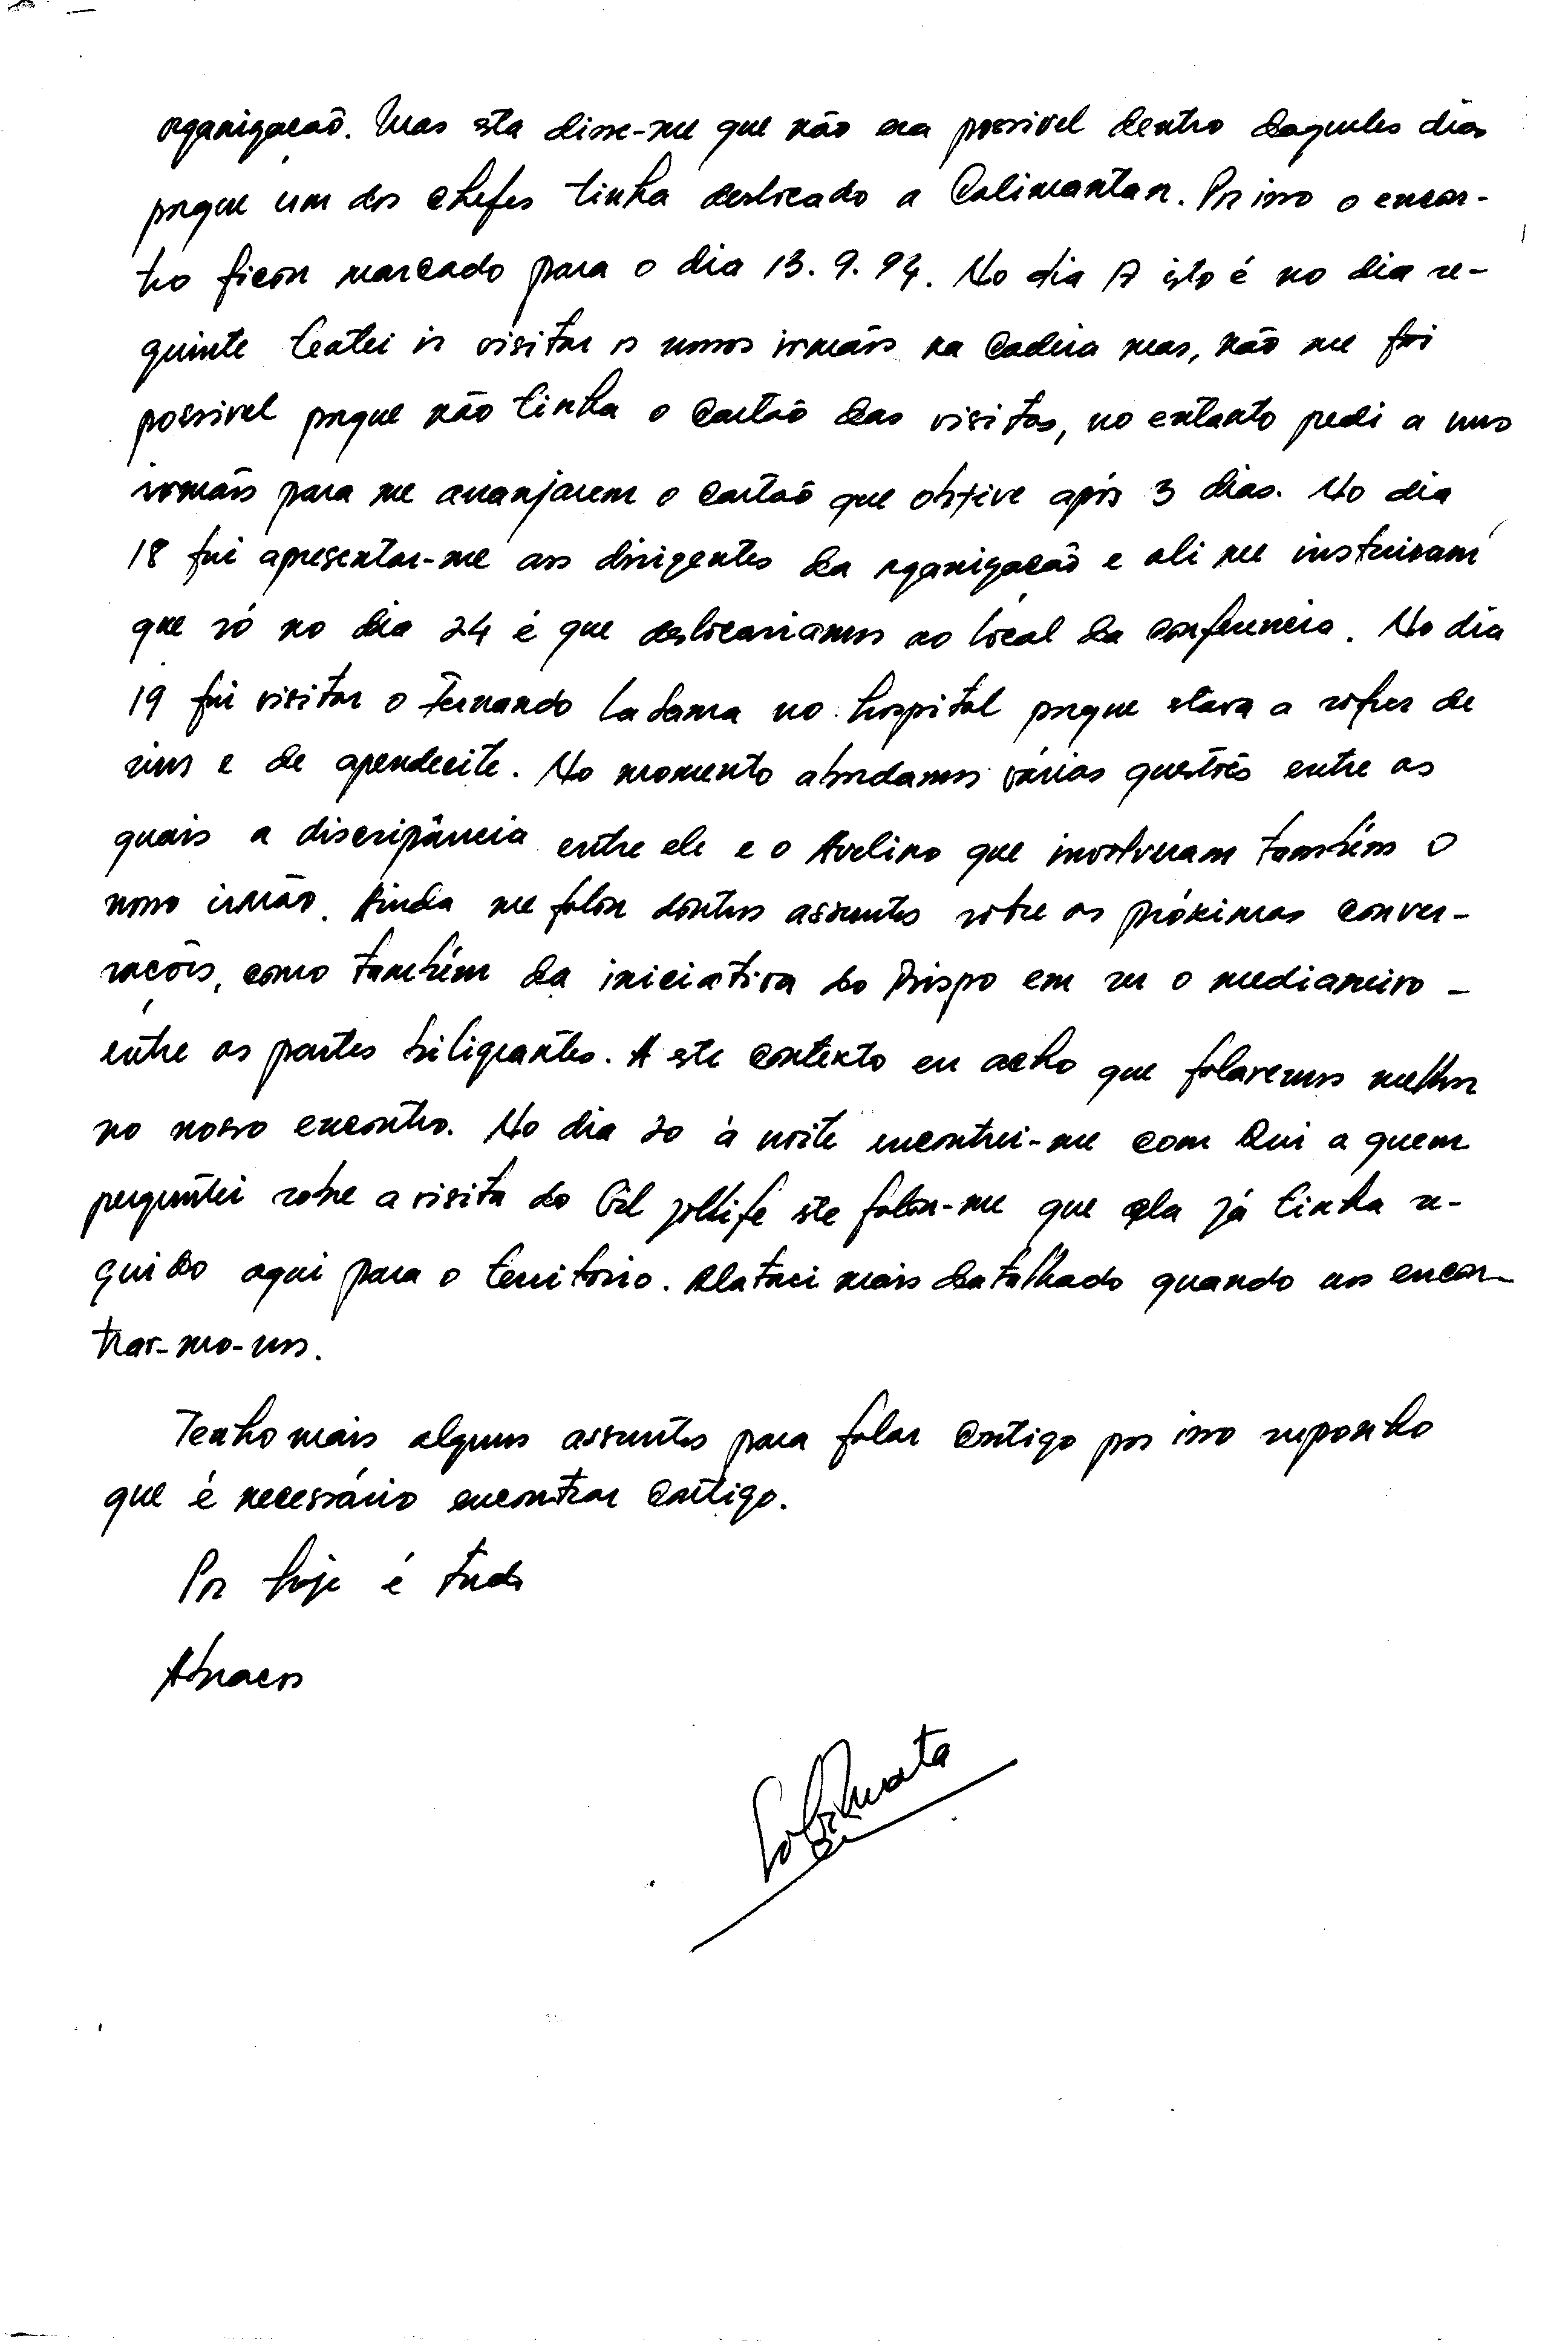 organização. Mas esta disse-me que não era possivel dentro daqueles dias
porque um dos chefes tinha deslocado a Calimantan. Por isso o encon-
tro ficou marcado para o dia 13.9.94. No dia 17 isto é no dia se-
guinte tentei ir visitar os nossos irmãos na Cadeia mas, não me foi
possivel porque não tinha o Cartão das visitas, no entanto pedi a uns
irmãos para me arranjarem o Cartão que obtive após 3 dias. No dia
18 fui apresentar-me aos dirigentes da organização e ali me instruiram
que só no dia 24 é que deslocariamos ao local da Conferencia. No dia
19 fui visitar o Fernando Lasama no hospital porque stava a sofrer de
rins e de apendecite. No momento abordamos várias questões entre as
quais a discripância entre ele e o Avelino que involveram também o
nosso irmão. Ainda me falou doutros assuntos sobre as próximas conver-
sações, como também da iniciativa do Bispo em ser o medianeiro -
entre as partes biligrantes. A este contexto eu acho que falaremos melhor
no nosso encontro. No dia 20 à noite encontrei-me com Rui a quem
perguntei sobre a visita do Gil este falou-me que ela já tinha se-
guido aqui para o territorio. Relatarei mais datalhado quando nos encon-
trar-mo-nos.
Tenho mais alguns assuntos para falar contigo por isso suponho
que é necessário encontrar contigo.
Por hoje é tudo
Abraços